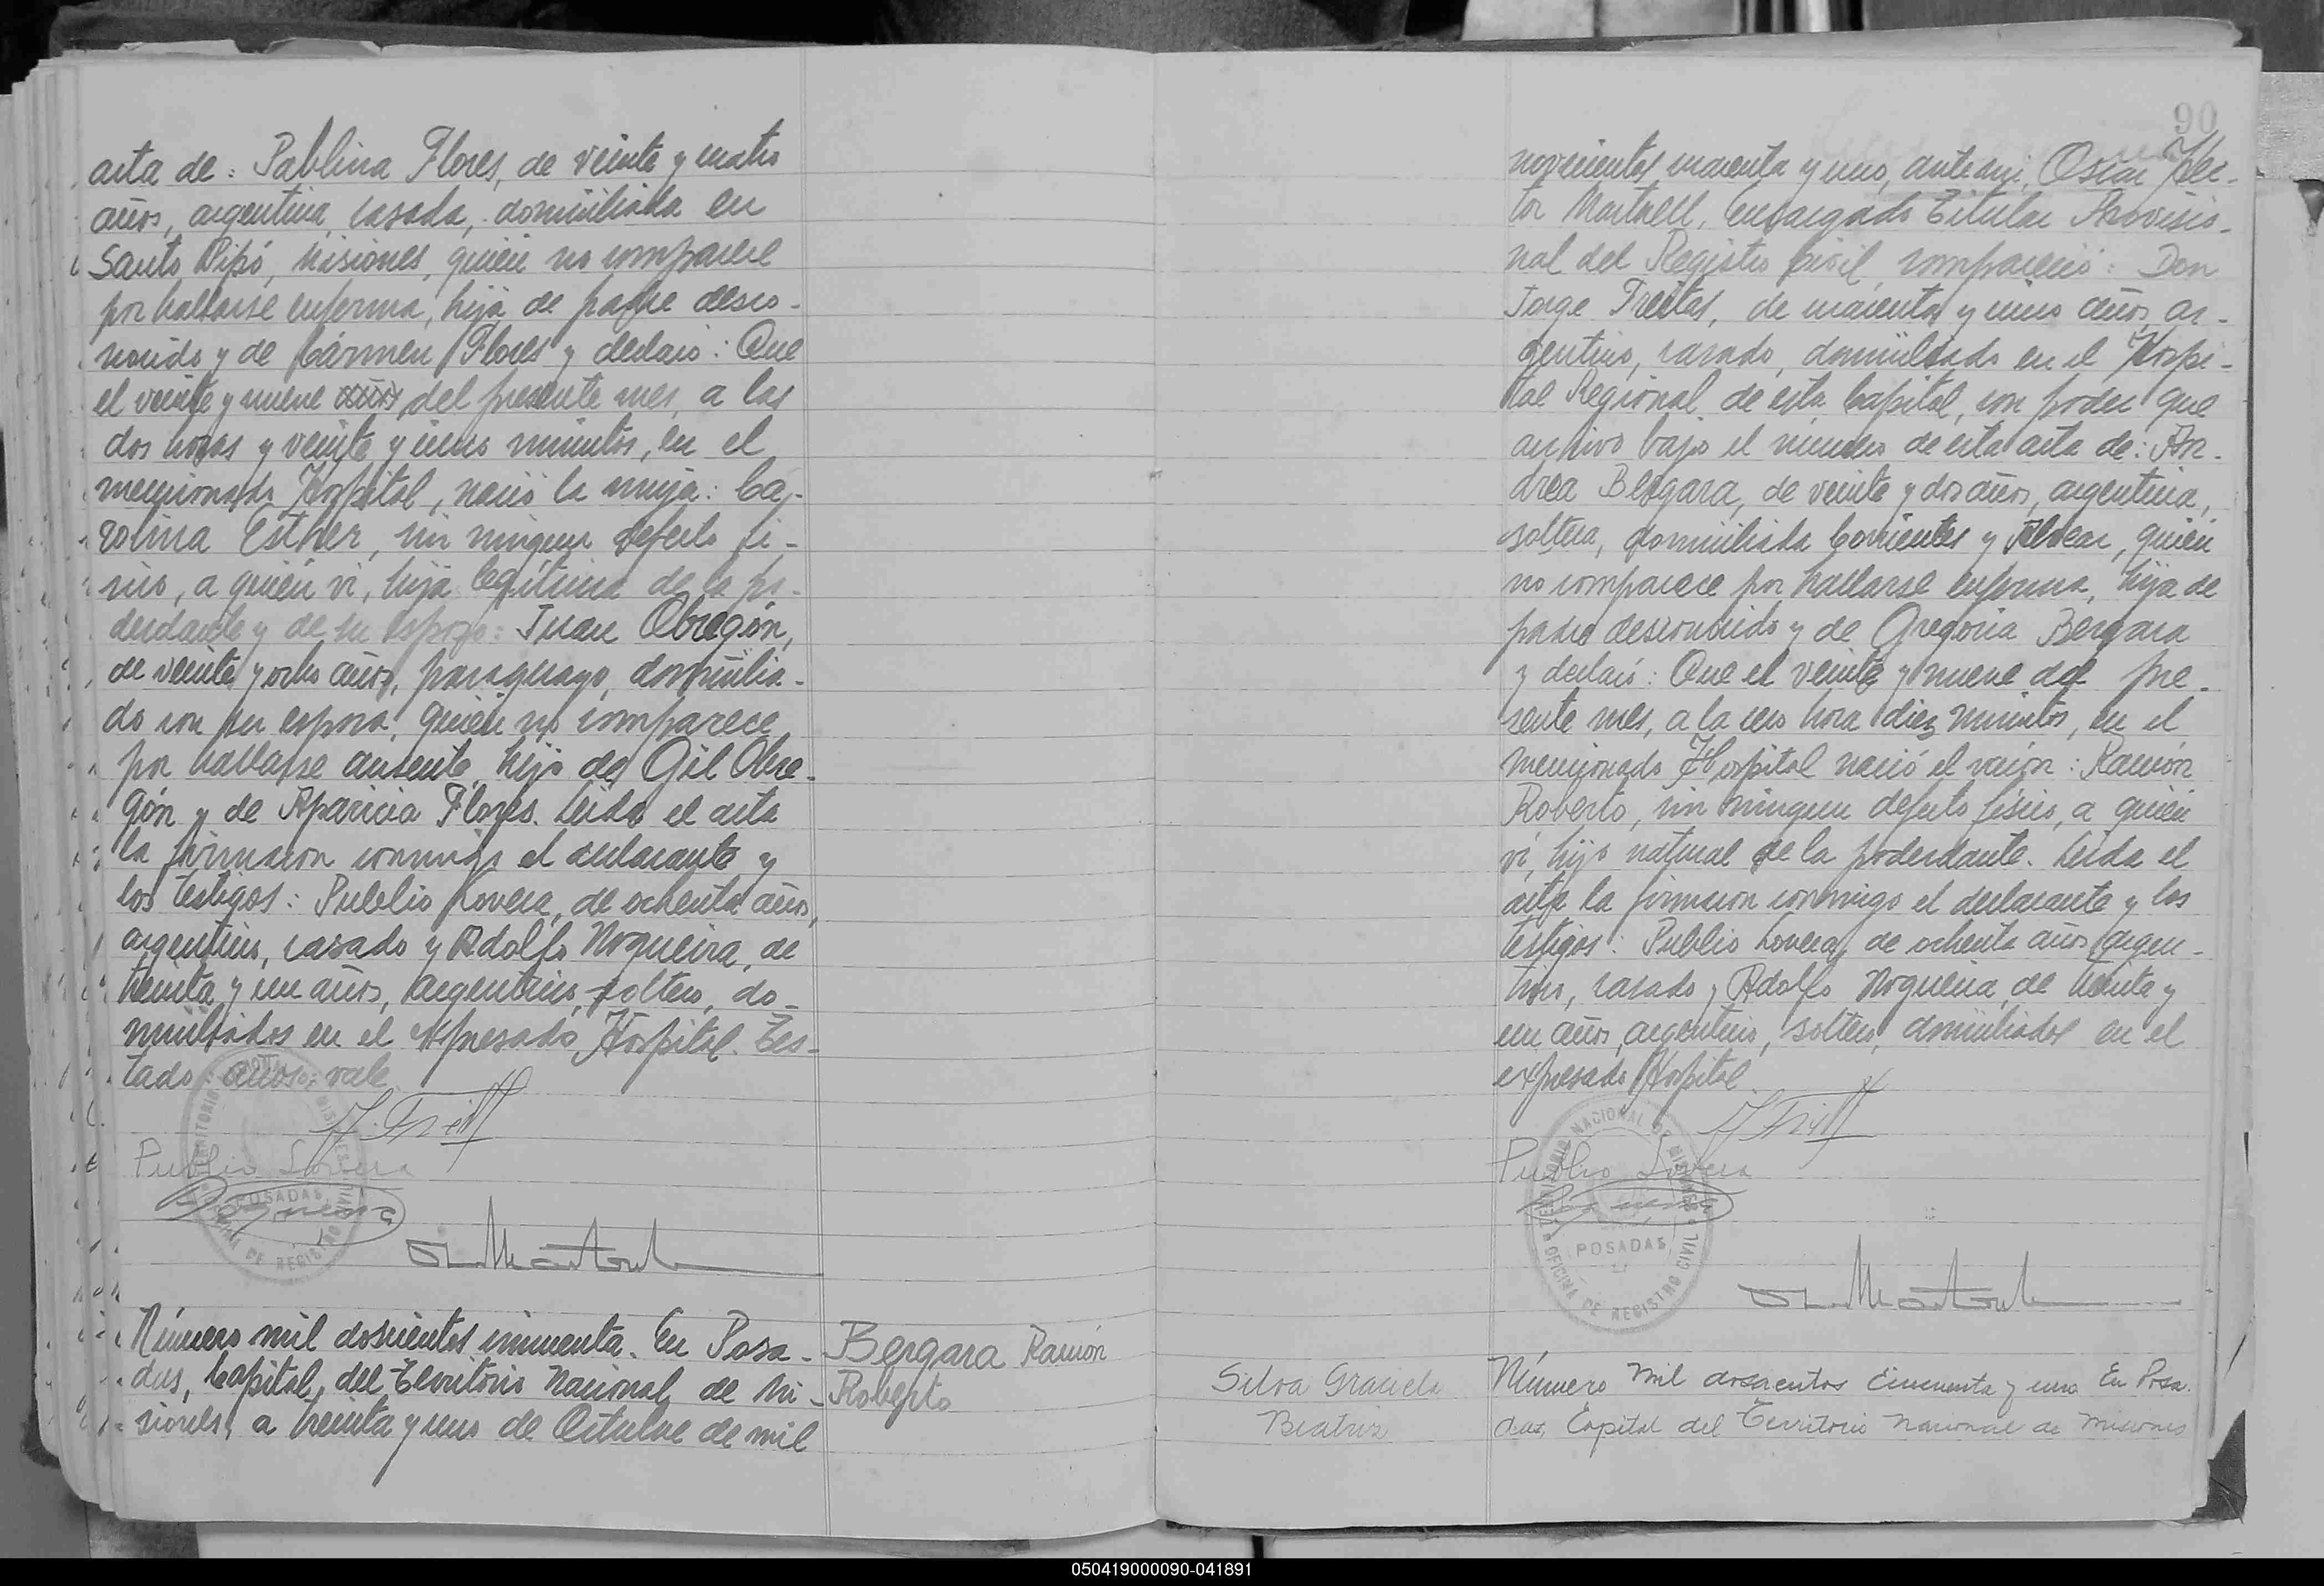 acta de: Pablina Flores, de veinte y cuatro
años, argentina, casada, domiciliada en
Santo Pipó, Misiones, quién no comparece
por hallarse enferma, hija de padre desco-
nocido y de Cármen Flores y declaró: Que
el veinte y nueve xxxxx del presente mes, a las
dos horas y veinte y cinco minutos, en el
mencionado Hospital, nació la mujer: Ca-
rolina Esther, sin ningun defecto fí-
sico, a quién ví, hija legítima de la po-
derdante y de su esposo: Juan Obregón,
de veinte y ocho años, paraguayo, domicilia-
do con su esposa, quién no comparece
por hallarse ausente, hijo de Gil Obre-
gón y de Aparicia Flores. Leida el acta
la firmaron conmigo el declarante y
los testigos: Publio Lovera, de ochenta años,
argentino, casado y Adolfo Nogueira, de
treinta y un años, argentino, soltero, do-
miciliados en el expresado Hospital. Tes-
tado: años: vale
J. Freit
Publio Lovera
POSADAS
Número mil doscientos cincuenta. En Posa-
das, Capital del Territorio Nacional de Mi-
siones, a treinta y uno de Octubre de mil
Bergara Ramón
Roberto
90
novecientos cuarenta y uno, ante mí, Oscar Hec-
tor Martnell, Encargado Titular Provisio-
nal del Registro Civil, compareció: Don
Jorge Freitas, de cuarenta y cinco años, ar-
gentino, casado, domiciliado en el Hospi-
tal Regional de esta Capital, con poder que
archivo bajo el número de esta acta de: An-
drea Bergara, de veinte y dos años, argentina,
soltera, domiciliada Corrientes y Alvear, quién
no comparece por hallarse enferma, hija de
padre desconocido y de Gregoria Bergara
y declaró: Que el veinte y nueve del pre-
sente mes, a la una hora diez minutos, en el
mencionado Hospital nació el varón: Ramón
Roberto, sin ningun defecto físico, a quién
ví, hijo natural de la poderdante. Leida el
acta la firmaron conmigo el declarante y los
testigos: Publio Lovera, de ochenta años, argen-
tino, casado y Adolfo Nogueira, de treinta y
un años, argentino, soltero, domiciliados en el
expresado Hospital.
J Freit
Publio Lovera
TERRITORIO NACIONAL DE MISIONES
POSADAS
OFICINA DE REGISTRO CIVIL
Silva Graciela
Beatriz
Número mil doscientos cincuenta y uno. En Posa-
das, Capital del Territorio Nacional de Misiones
050419000090-041891